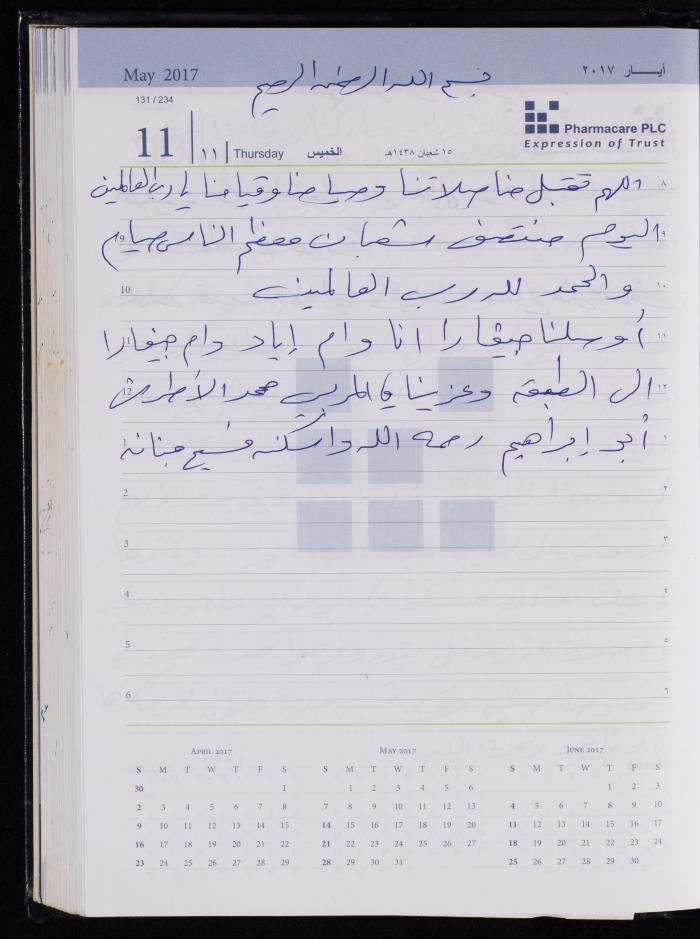 May 2017
أيـــار ٢٠١٧
بسم الله الرحمن الرحيم
131 / 234
11 ١١ Thursday الخميس ١٥ شعبان ١٤٣٨هـ
Pharmacare PLC
Expression of Trust
اللهم تقبل منا صلاتنا وصيامنا وقيامنا يا رب العالمين ٨
اليوم منتصف شعبان معظم الناس صيام ٩
10 والحمد لله رب العالمين ١٠
11 أوصلنا جيفارا أنا وام إياد وام جيفارا ١١
12 الى الطبقة وعزينا بالمربي محمد الأطرش ١٢
1 أبو إبراهيم رحمه الله واسكنه فسيح جنانه ١
2 ٢
3 ٣
4 ٤
5 ٥
6 ٦
April 2017
S M T W T F S
30 1
2 3 4 5 6 7 8
9 10 11 12 13 14 15
16 17 18 19 20 21 22
23 24 25 26 27 28 29
May 2017
S M T W T F S
1 2 3 4 5 6
7 8 9 10 11 12 13
14 15 16 17 18 19 20
21 22 23 24 25 26 27
28 29 30 31
June 2017
S M T W T F S
1 2 3
4 5 6 7 8 9 10
11 12 13 14 15 16 17
18 19 20 21 22 23 24
25 26 27 28 29 30